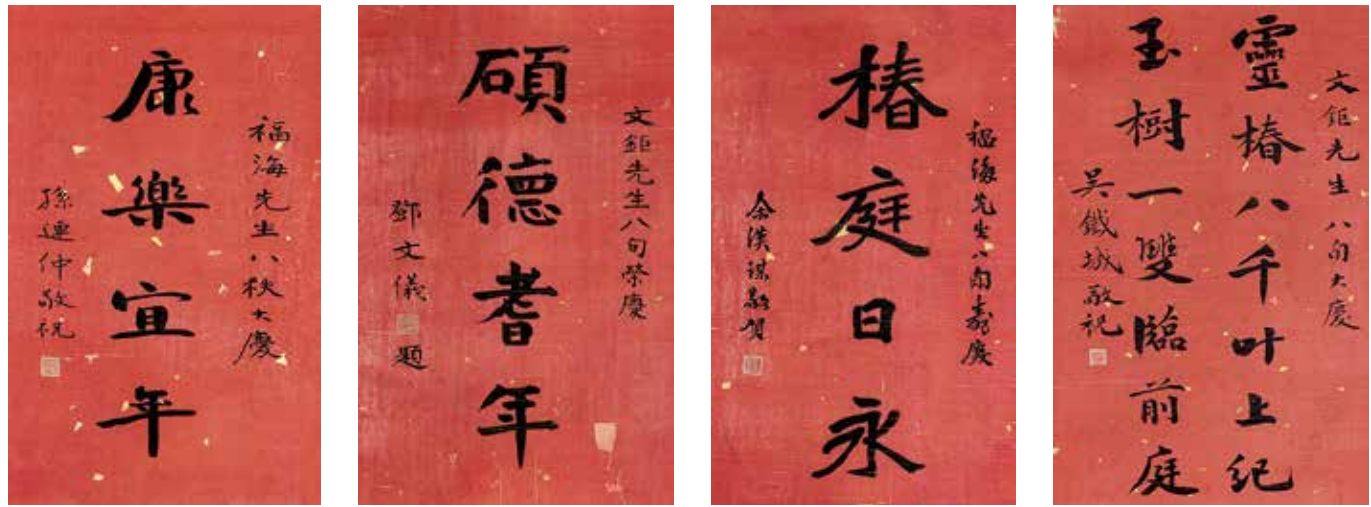 福海先生八秩大慶
康樂宜年
孫連仲敬祝
文鉅先生八旬榮慶
碩德耆年
鄧文儀題
福海先生八旬壽慶
椿庭日永
余漢謀敬賀
文鉅先生八旬大慶
靈椿八千叶上紀
玉樹一雙臨前庭
吳鐵城敬祝